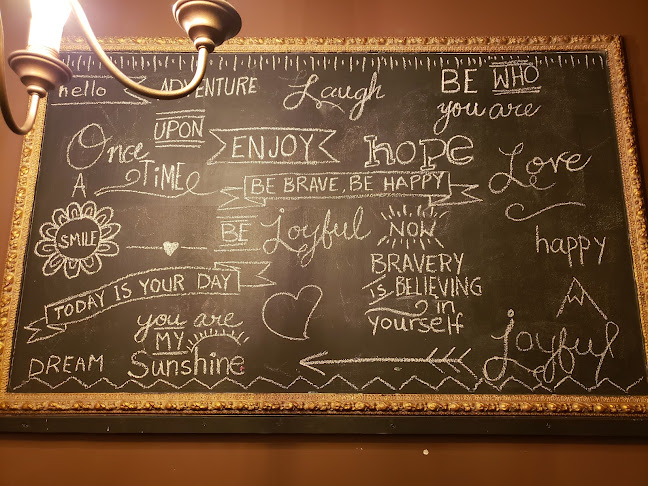 hello
ADVENTURE
Laugh
BE WHO
you are
Once
UPON
A TIME
ENJOY
hope
Love
BE BRAVE, BE HAPPY
SMILE
BE Joyful
NOW
happy
BRAVERY
IS BELIEVING
in
yourself
TODAY IS YOUR DAY
you are
MY
Sunshine
DREAM
Joyful